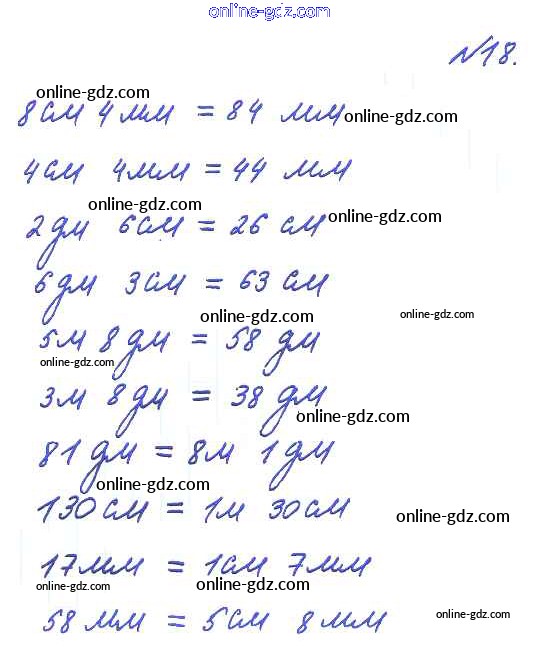 online-gdz.com
№18.
online-gdz.com
8см 4мм = 84 мм online-gdz.com
4см 4мм = 44 мм
online-gdz.com
2дм 6см = 26 см online-gdz.com
6дм 3см = 63 см
online-gdz.com online-gdz.com
5м 8дм = 58 дм
online-gdz.com
3м 8дм = 38 дм
online-gdz.com
81дм = 8м 1дм
online-gdz.com
130см = 1м 30см
online-gdz.com
17мм = 1см 7мм
online-gdz.com online-gdz.com
58мм = 5см 8мм
online-gdz.com